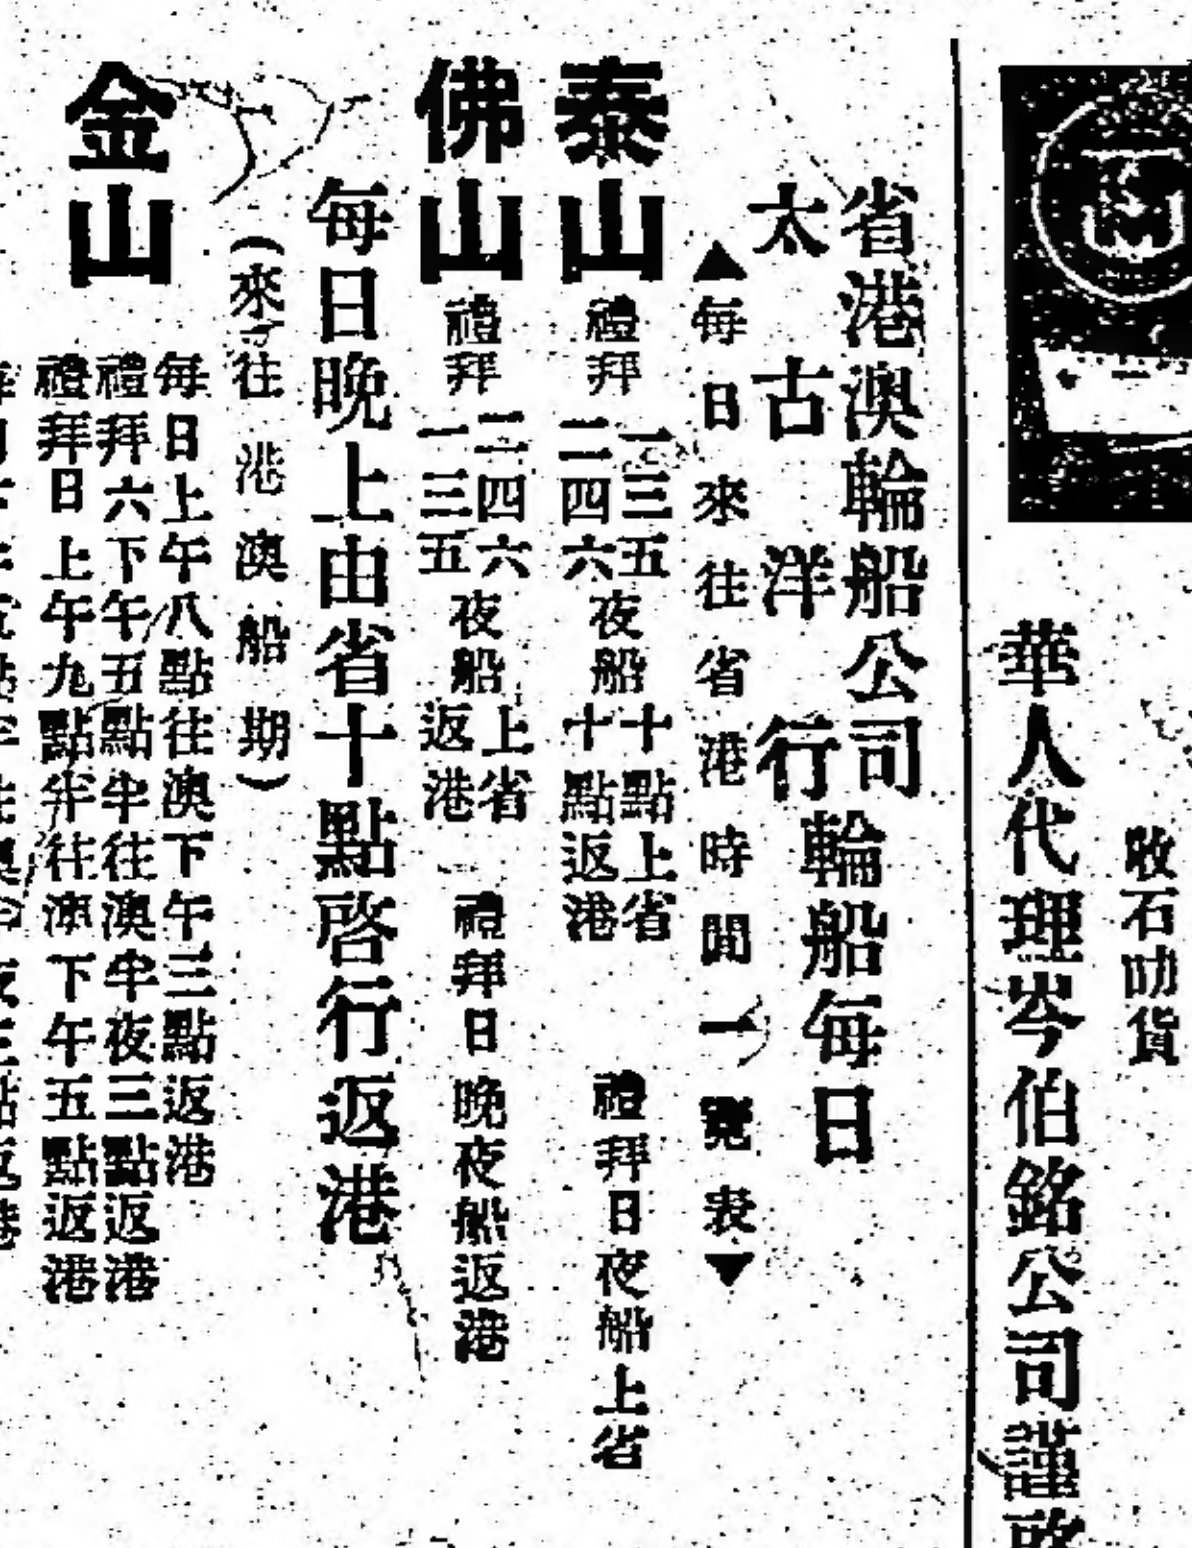 收石叻貨
華人代理岑伯銘公司謹啓
省港澳輪船公司
太古洋行
輪船每日
▲每日來往省港時間一覽表▼
泰山
禮拜
一三五
二四六
夜船
十點上省
十點返港
禮拜日夜船上省
佛山
禮拜
二四六
一三五
夜船
上省
返港
禮拜日晚夜船返港
每日晚上由省十點啓行返港
(來往港澳船期)
金山
每日上午八點往澳下午三點返港
禮拜六下午五點半往澳半夜三點返港
禮拜日上午九點半往澳下午五點返港